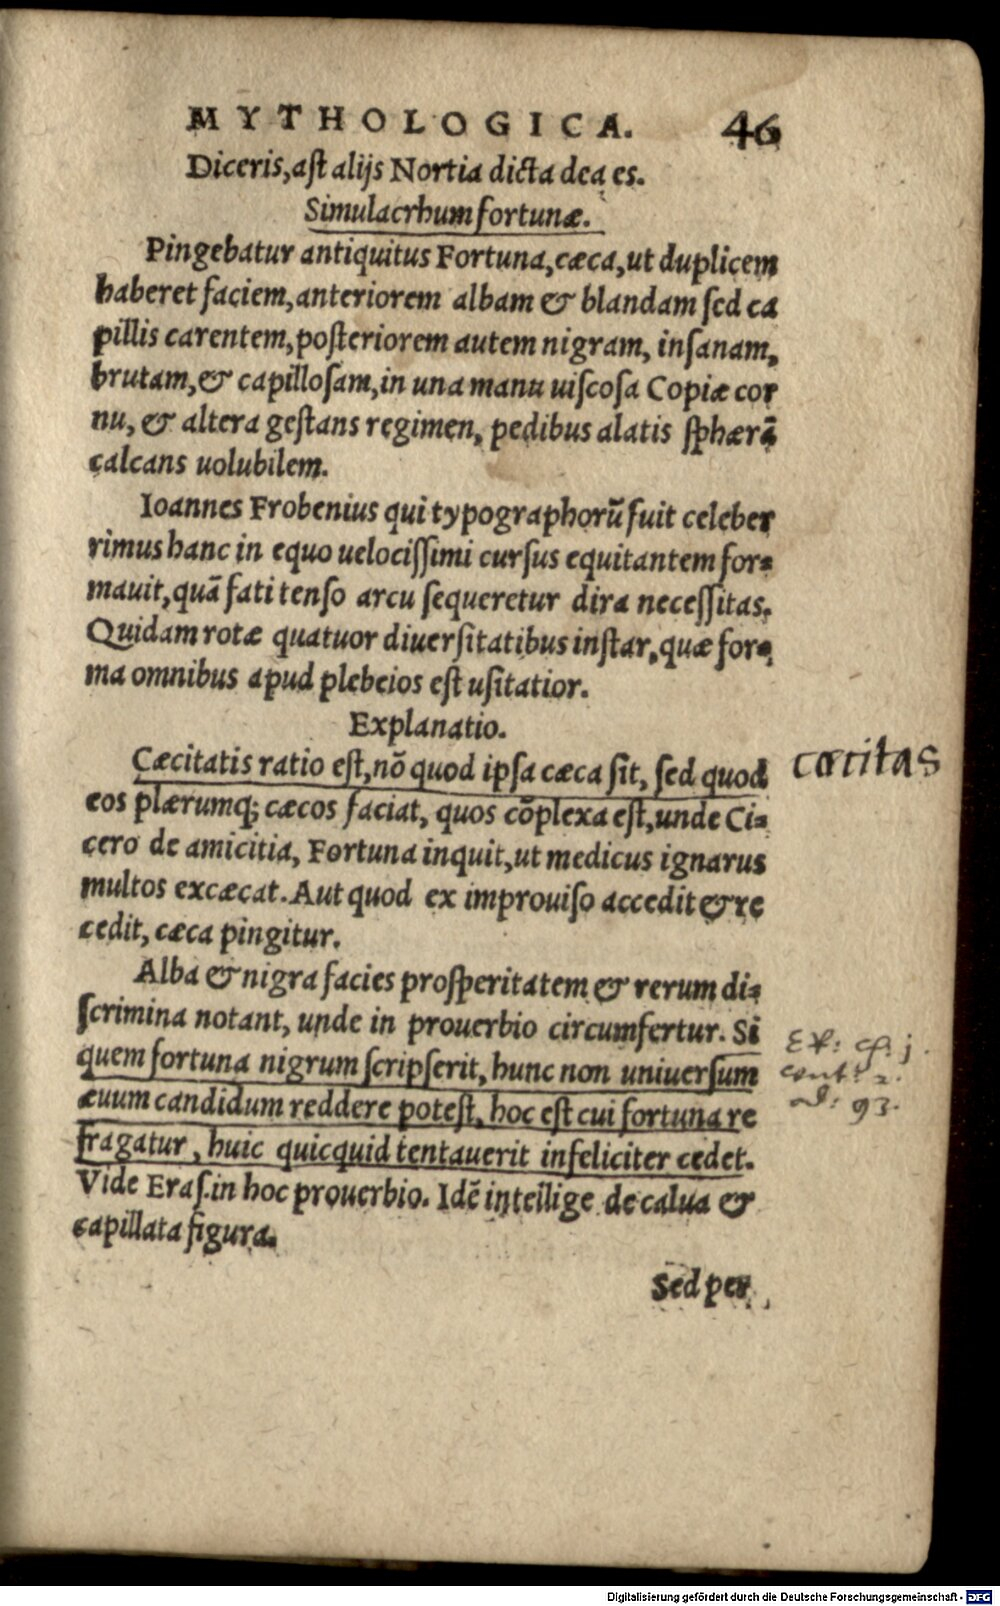 MYTHOLOGICA. 46
Diceris, aſt alijs Nortia dicta dea es.
Simulacrhum fortunæ.
Pingebatur antiquitus Fortuna, cæca, ut duplicem
haberet faciem, anteriorem albam & blandam ſed ca
pillis carentem, poſteriorem autem nigram, inſanam,
brutam, & capilloſam, in una manu uiſcoſa Copiæ cor
nu, & altera geſtans regimen, pedibus alatis ſphærã
calcans uolubilem.
Ioannes Frobenius qui typographorũ fuit celeber
rimus hanc in equo uelociſſimi curſus equitantem for-
mauit, quã fati tenſo arcu ſequeretur dira neceſſitas.
Quidam rotæ quatuor diuerſitatibus inſtar, quæ for-
ma omnibus apud plebeios eſt uſitatior.
Explanatio.
Cæcitatis ratio eſt, nõ quod ipſa cæca ſit, ſed quod
cæcitas
eos plærumq; cæcos faciat, quos cõplexa eſt, unde Ci-
cero de amicitia, Fortuna inquit, ut medicus ignarus
multos excæcat. Aut quod ex improuiſo accedit & re
cedit, cæca pingitur.
Alba & nigra facies proſperitatem & rerum di-
ſcrimina notant, unde in prouerbio circumfertur. Si
quem fortuna nigrum ſcripſerit, hunc non uniuerſum
æuum candidum reddere poteſt, hoc eſt cui fortuna re
93.
fragatur, huic quicquid tentauerit infeliciter cedet.
Vide Eraſ. in hoc prouerbio. Idẽ intellige de calua &
capillata figura.
Sed per
Digitalisierung gefördert durch die Deutsche Forschungsgemeinschaft - DFG